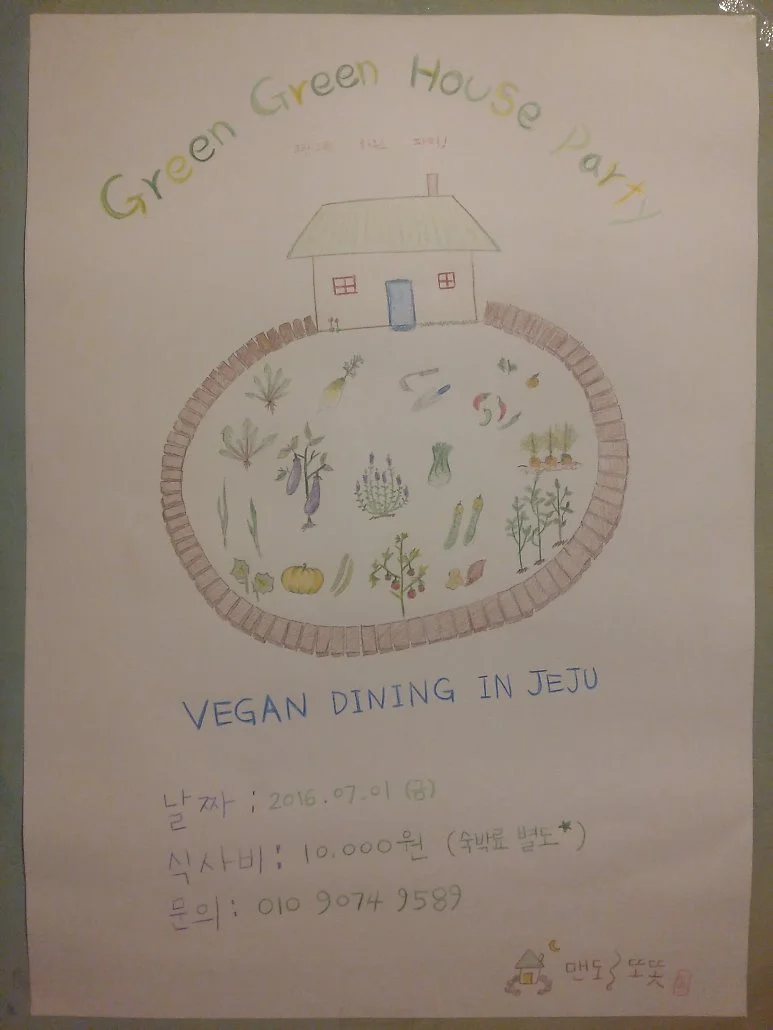 Green Green House Party
VEGAN DINING IN JEJU
날짜 : 2016.07.01 (금)
식사비 : 10.000원 (숙박료 별도*)
문의 : 010 9074 9589
맨도롱 또똣